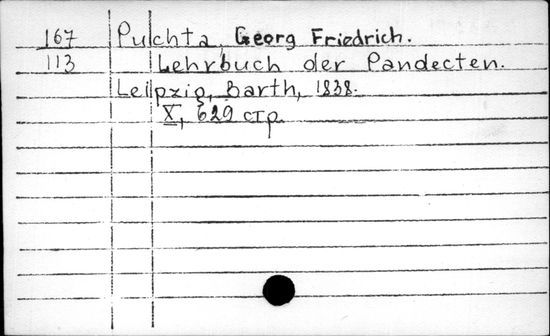 167 Puchta, Georg Friedrich.
113 Lehrbuch der Pandecten.
Leipzig, Barth, 1838.
X, 629 стр.